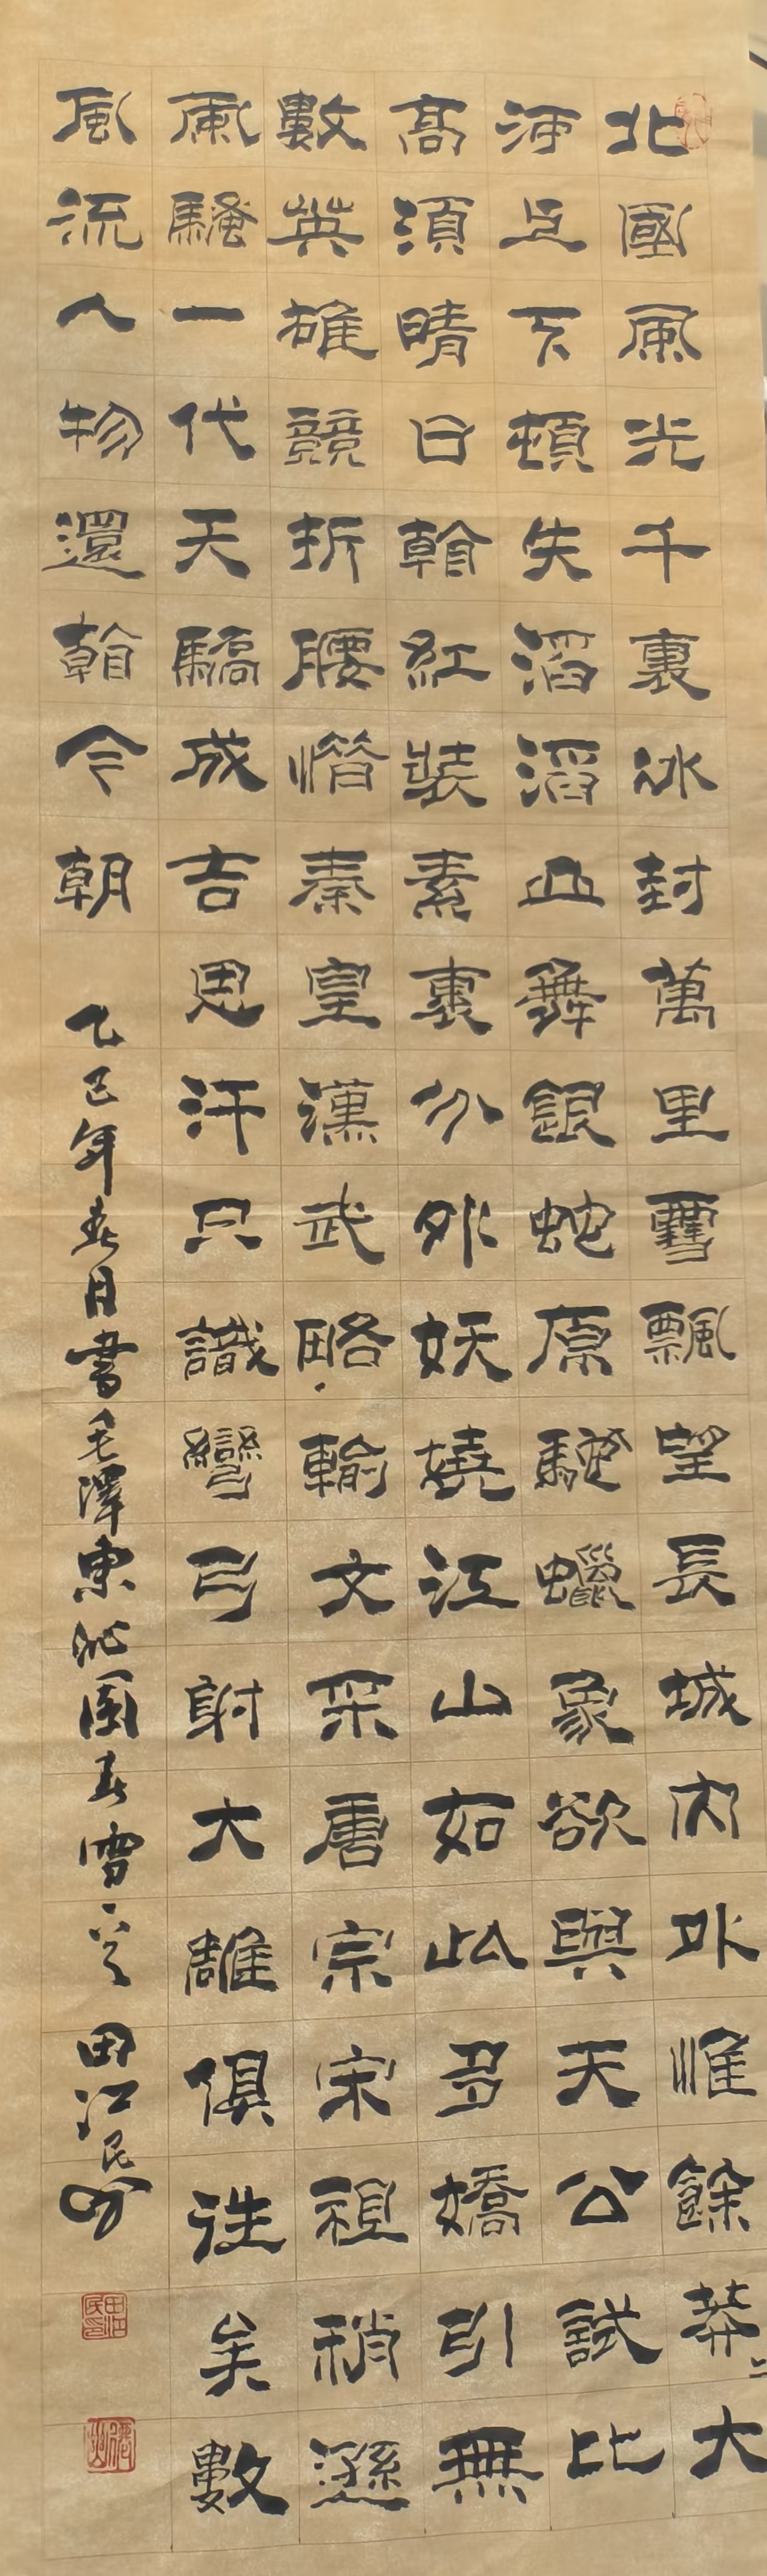 北國風光千裏冰封萬里雪飄望長城内外惟餘莽〻大
河上下頓失滔滔山舞銀蛇原馳蠟象欲與天公試比
高須晴日看紅裝素裹分外妖嬈江山如此多嬌引無
數英雄競折腰惜秦皇漢武略輸文采唐宗宋祖稍遜
風騷一代天驕成吉思汗只識彎弓射大雕俱往矣數
風流人物還看今朝 乙巳年春日書毛澤東沁園春雪 田江民